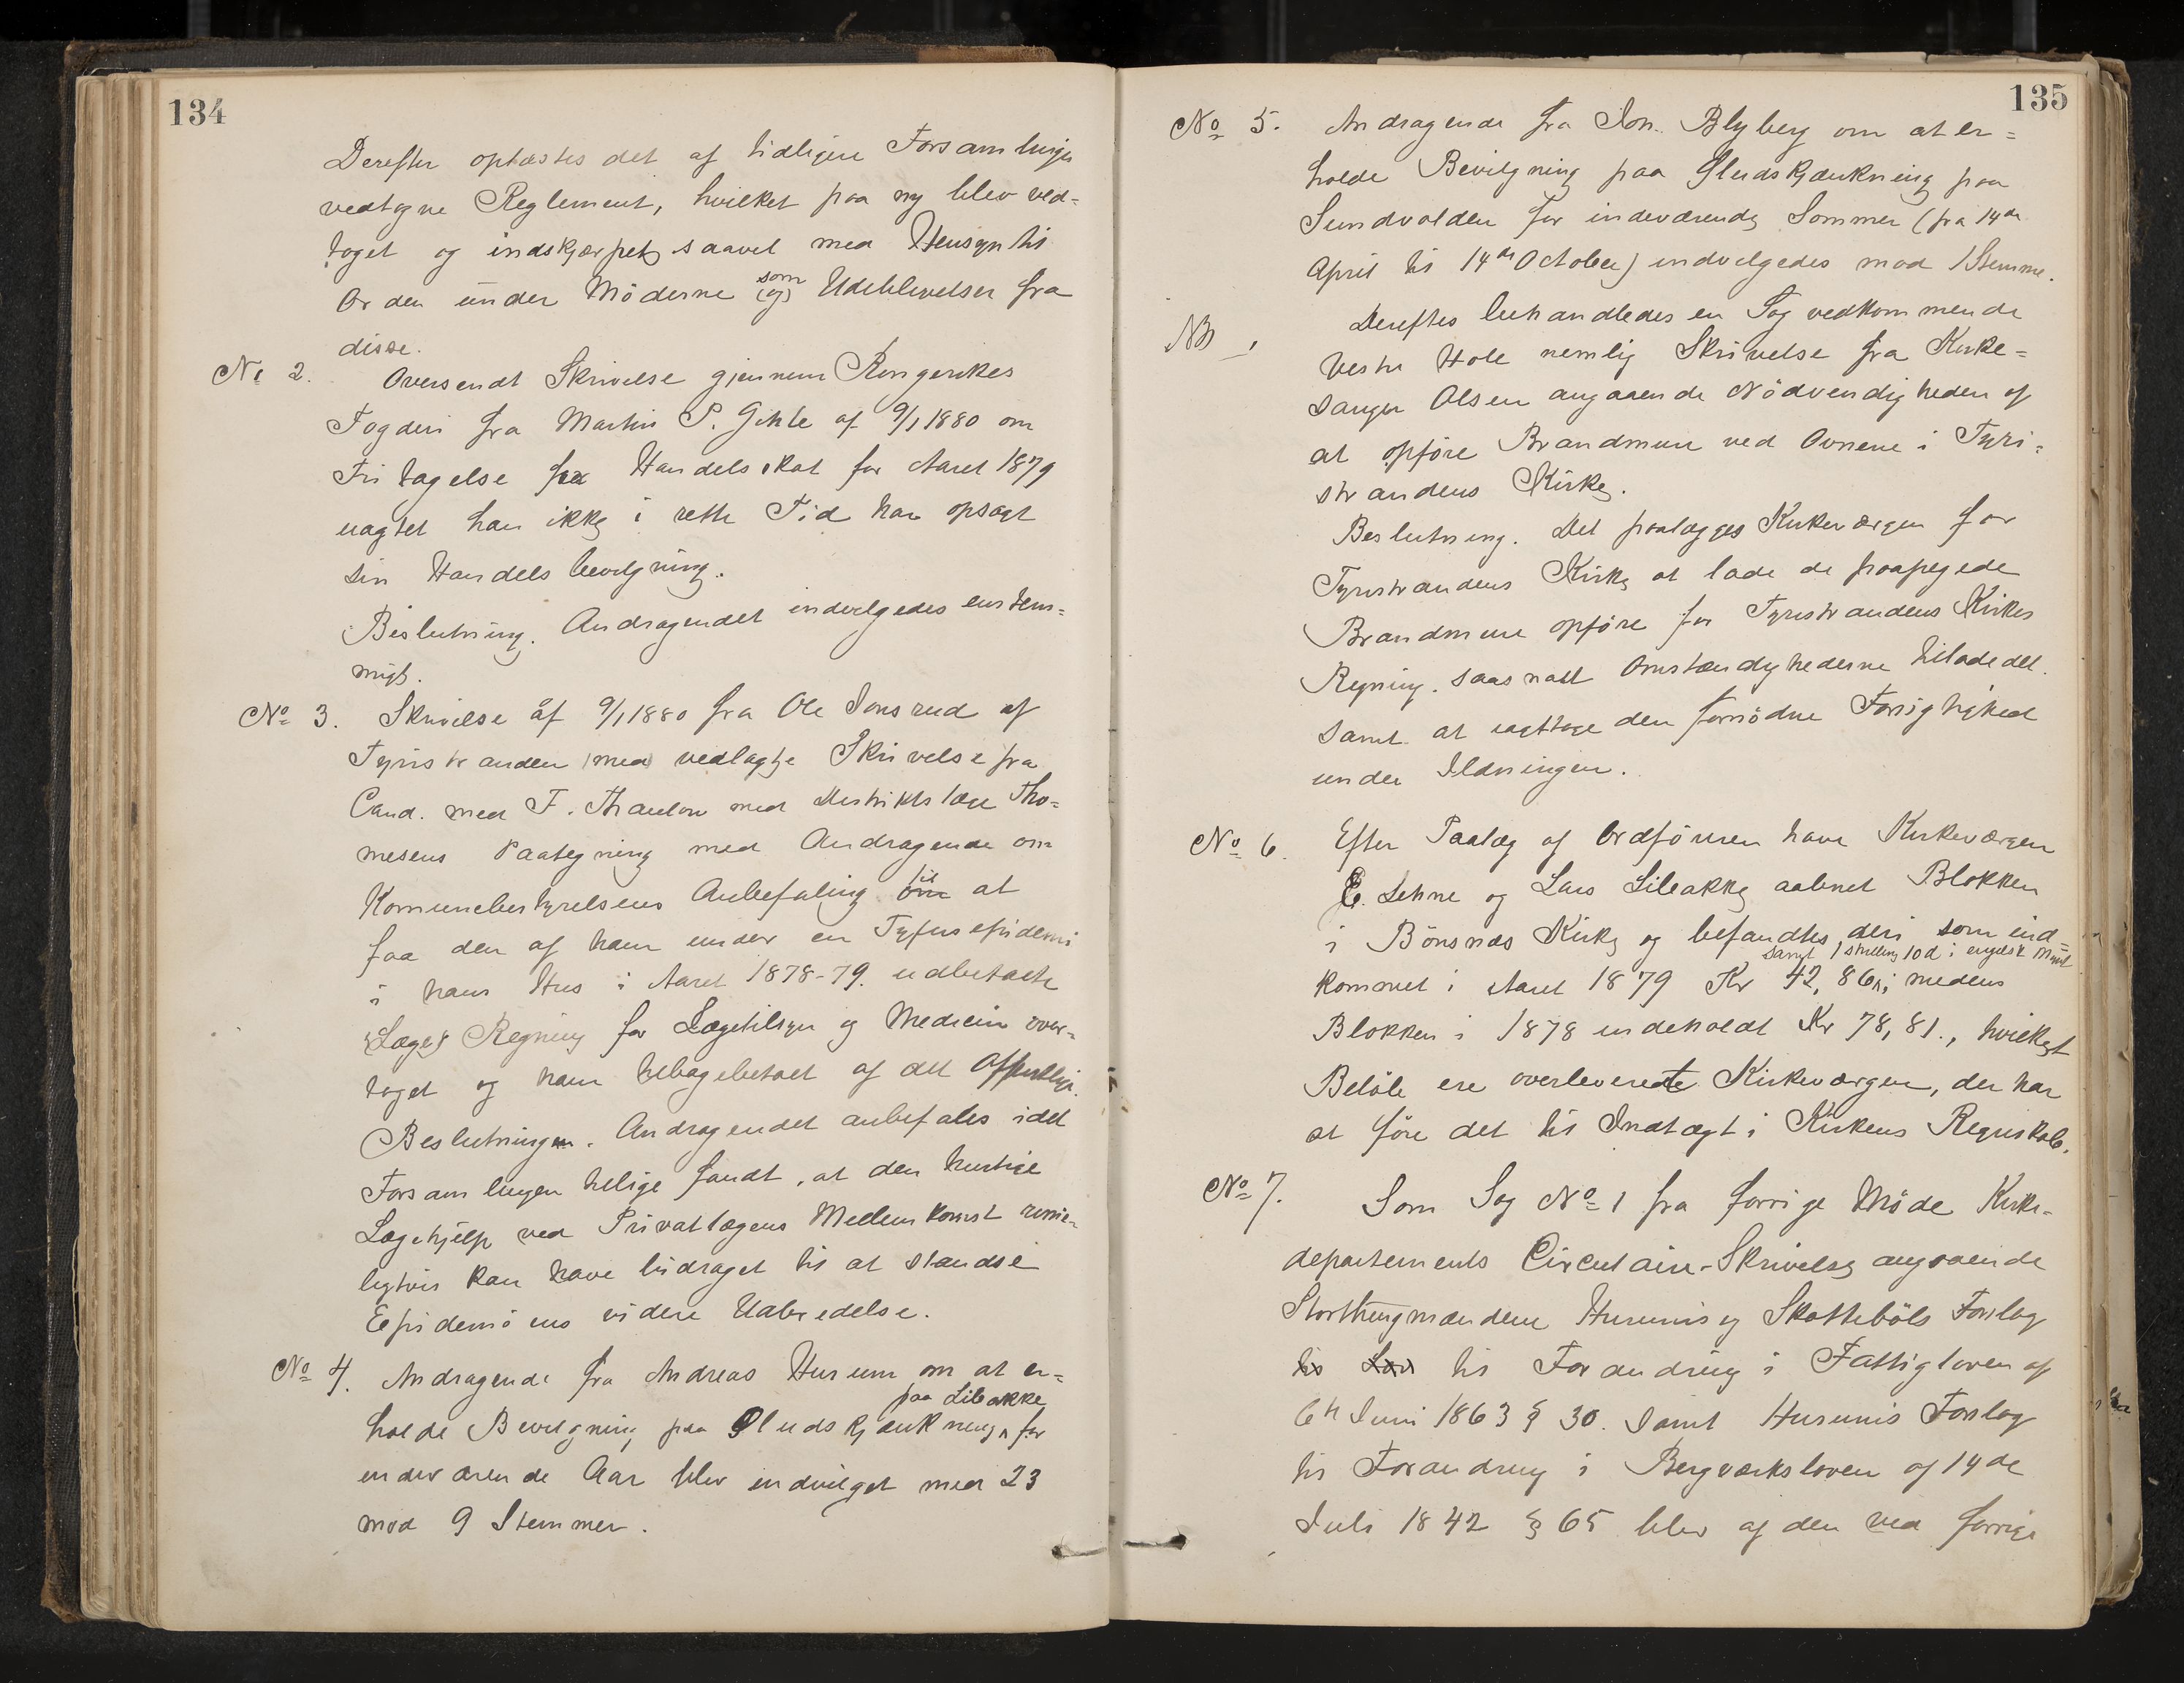 134
Derefter oplæstes det af tidligere Forsamlinger
vedtagne Reglement, hvilket paa ny blev ved-
taget og indskjærpet saavel med Hensyn til
Orden under Möderne (og) som Udeblivelser fra
disse.
No 2. Oversendt Skrivelse gjennem Ringerikes
Fogderi fra Martin P. Gihle af 9/1 1880 om
Fritagelse fra Handelsskat for Aaret 1879
uagtet han ikke i rette Tid har opsagt
sin Handelsbevilgning.
Beslutning. Andragendet indvilgedes enstem-
migt.
No 3. Skrivelse af 9/1 1880 fra Ole Sonsrud af
Tyristranden (med) vedlagte Skrivelse fra
Cand. med F. Thaulow med Distriktslæge Tho-
mesens Paategning med Andragende om
Komunebestyrelsens Anbefaling om til at
faa den af ham under en Tyfusepidemi
i hans Hus i Aaret 1878-79. udbetalte
(Læge) Regning for Lægetilsyn og Medicin over-
taget og ham tilbagebetalt af det Offentlige.
Beslutningen. Andragendet anbefales idet
Forsamlingen tillige fandt, at den hurtige
Lægehjelp ved Privatlægens Mellemkomst rime-
ligtvis kan have bidraget til at standse
Epidemiens videre Udbredelse.
No 4. Andragende fra Andreas Hurum om at er-
paa Libakke
holde Bevilgning paa Öludskjænkning for
indeværende Aar blev indvilget med 23
mod 9 Stemmer.
135
No 5. Andragende fra Jon. Blyberg om at er-
holde Bevilgning paa Öludskjænkning paa
Sundvolden for indeværende Sommer (fra 14de
April til 14de October) indvilgedes mod 1 Stemme.
NB Derefter behandledes en Sag vedkommende
Vestre Hole nemlig Skrivelse fra Kirke-
sanger Olsen angaaende Nödvendigheden af
at opföre Brandmure ved Ovnene i Tyri-
strandens Kirke.
Beslutning. Det paalægges Kirkeværgen for
Tyristrandens Kirke at lade de paapegede
Brandmure opföre for Tyristrandens Kirkes
Regning. saasnart Omstændighederne tilade det.
samt at iagttage den fornödne Forsigtighed
under Ildningen.
No 6. Efter Paalæg af Ordföreren have Kirkeværgen
E. Lehne og Lars Libakke aabnet Blokken
i Bönsnæs Kirke og befandtes deri som ind-
samt 1 Shilling 10d i engelsk Mynt
kommet i Aaret 1879 Kr 42,86; medens
Blokken i 1878 indeholdt Kr 78,81., hvilket
Belöb ere overleverede Kirkeværgen, der har
at före det til Indtægt i Kirkens Regnskab.
No 7. Som Sag No 1 fra forrige Möde Kirke-
departements Circulaire-Skrivelse angaaende
Storthingmændene Hurums og Skattebôls Forslag
til Lov til Forandring i Fattigloven af
6te Juni 1863 § 30. samt Hurums Forslag
til Forandring i Bergværksloven af 14de
Juli 1842 § 65 blev af den ved forrige